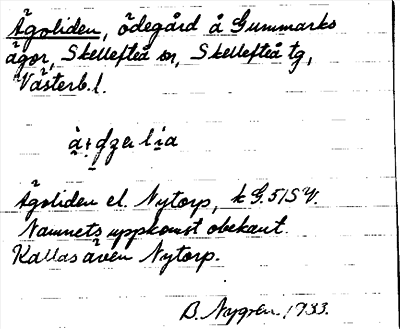 Ägoliden, ödegård å Gummarks
ägor, Skellefteå sn, Skellefteå tg,
Västerb. l.
Ägoliden el. Nytorp, k G.5/SV.
Namnets uppkomst obekant.
Kallas även Nytorp.
B. Nygren. 1933.